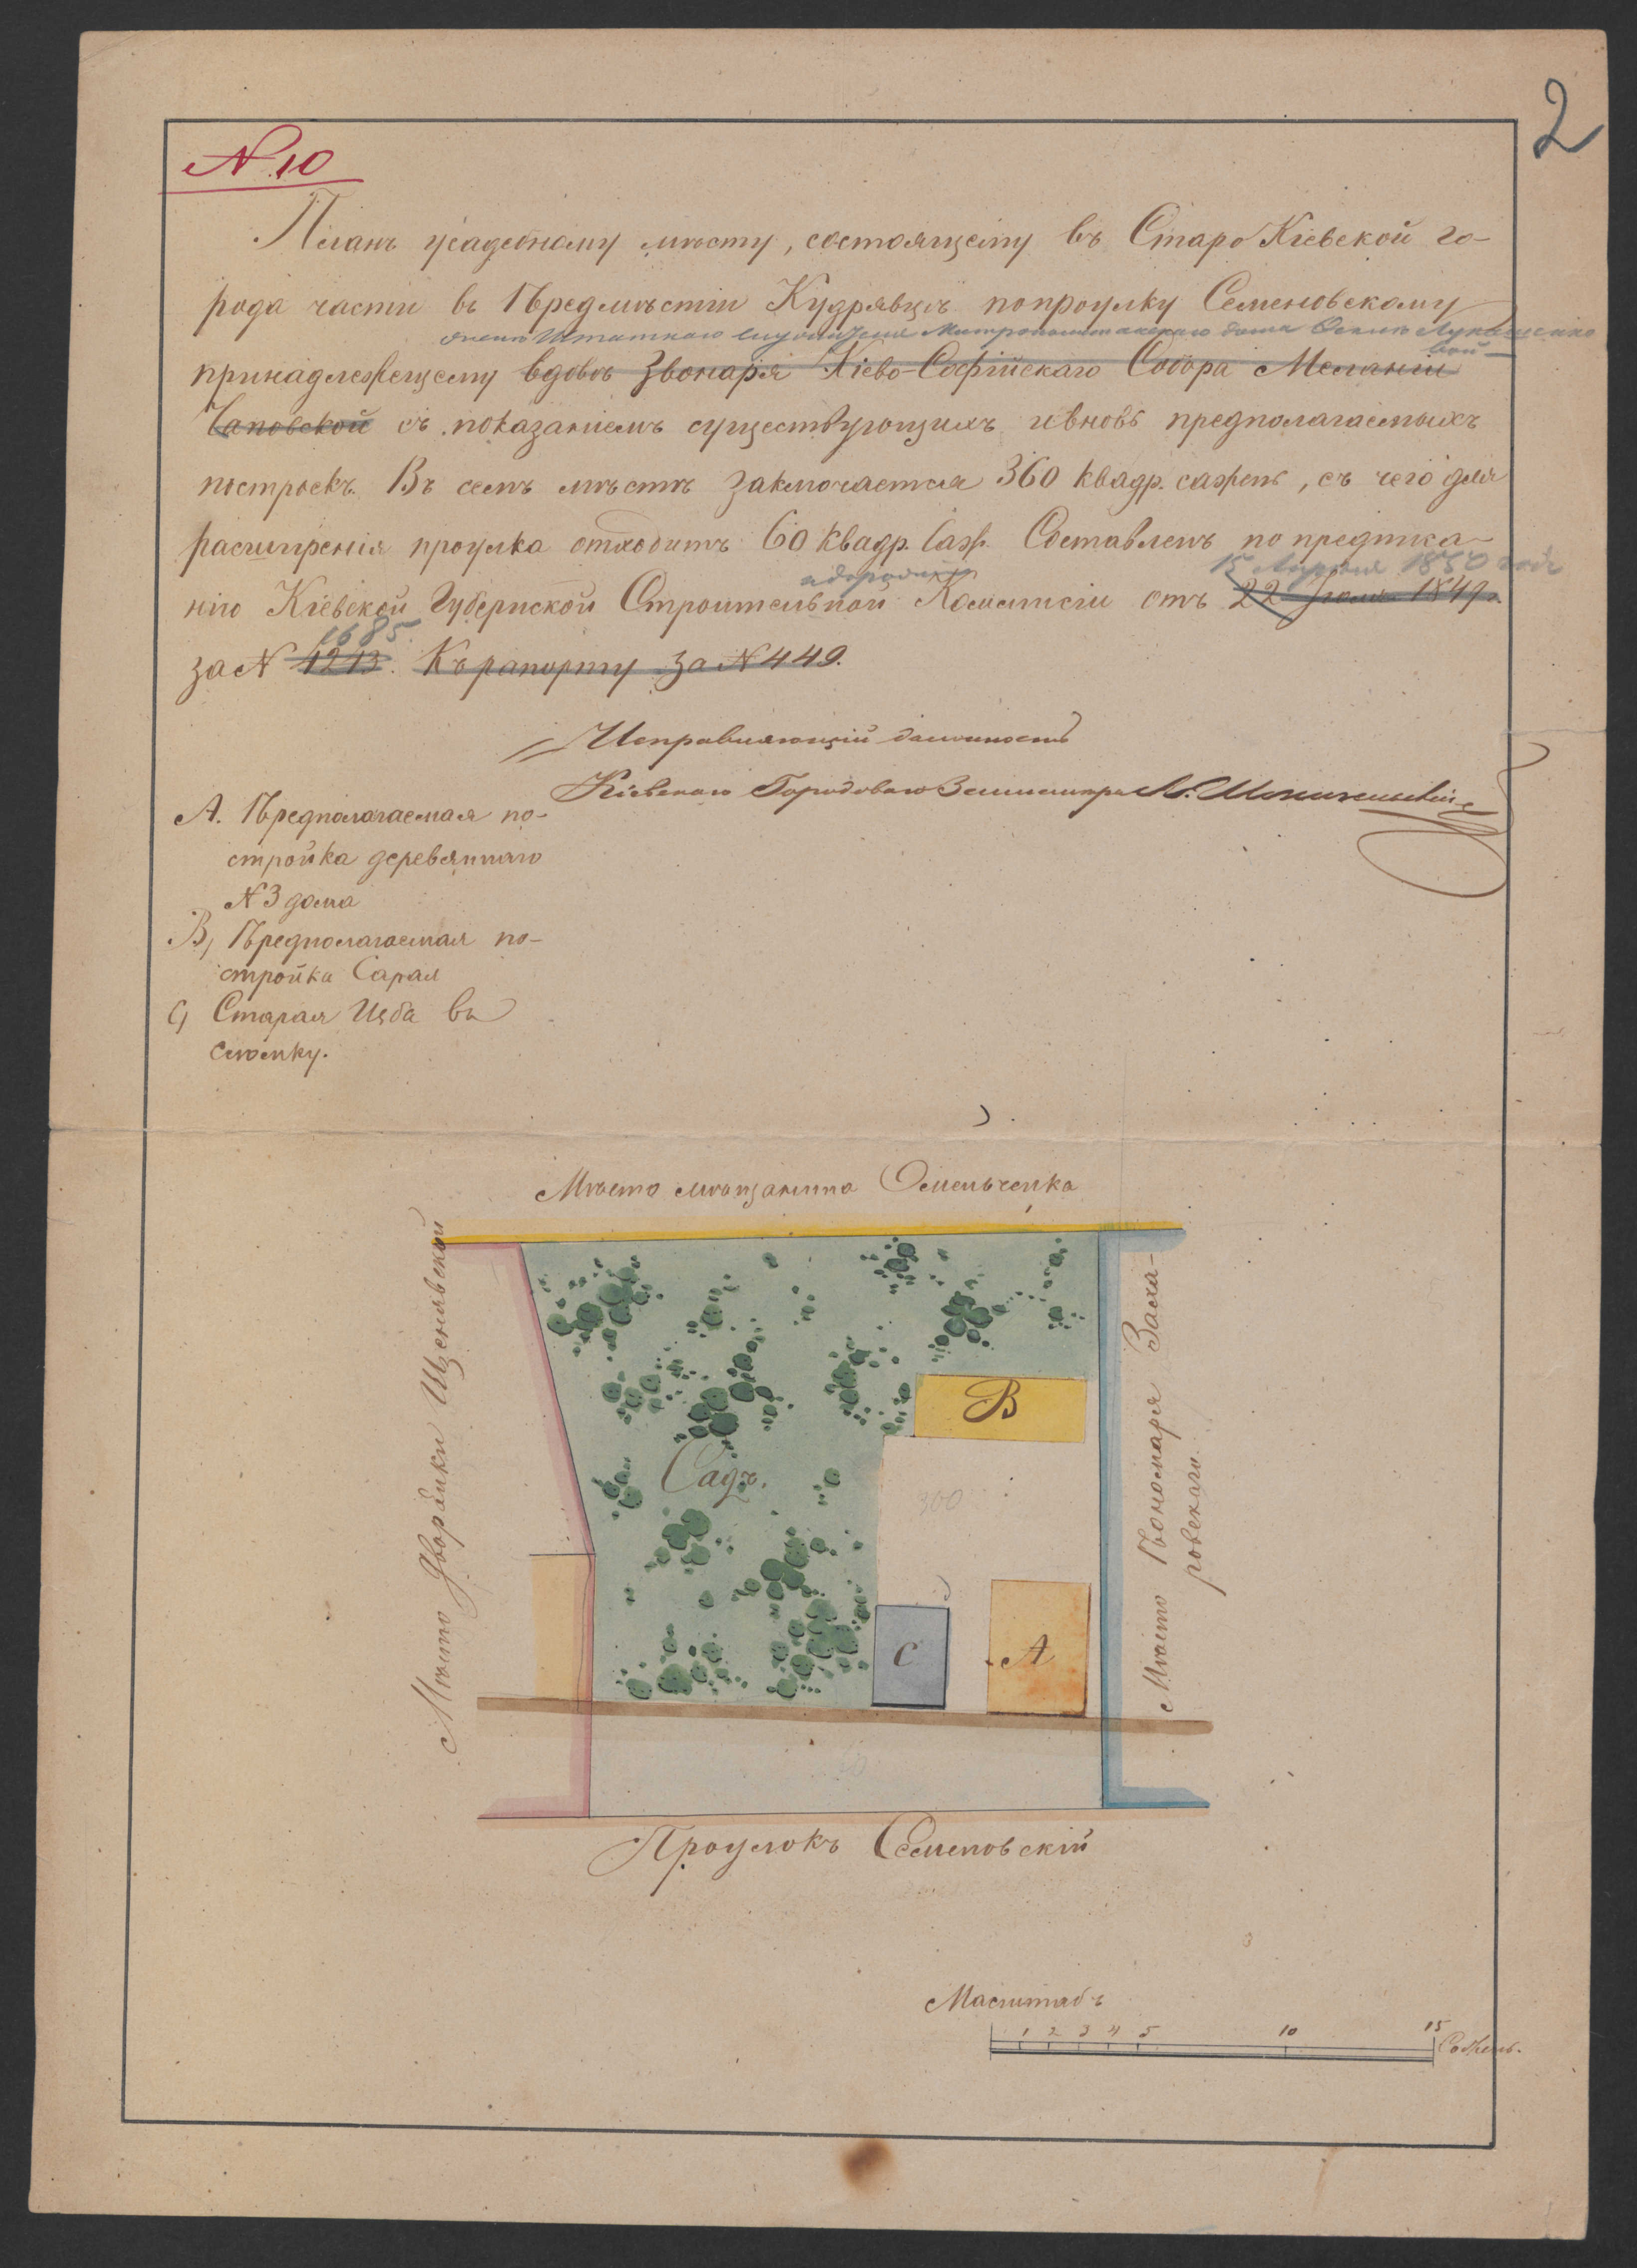 2
N. 10
Планъ усадебному мѣсту, состоящему въ Старо Кіевской го-
рода части въ Предмѣстіи Кудрявцѣ попроулку Семеновскому
женѣ Штатнаго служителя Митрополитанскаго дома
вой
принадлежащему вдовѣ Звонаря Кіево-Софійскаго Собора Меланіи
Чаповской съ показаніемъ существующихъ ивновь предполагаемыхъ
построекъ. Въ семъ мѣстѣ заключается 360 квадр. сажень, съ чего для
расширенія проулка отходитъ 60 квадр. Саж. Составленъ по предписа-
15 1850 года
нію Кіевской Губернской Строительной Комитсіи отъ 22 1849 г.
1685.
за N 1213. Къ рапорту за N 449.
Исправляющій должность
Кіевскаго Городоваго Землемира
А. Предполагаемая по-
стройка деревяннаго
N 3 дома
В, Предполагаемая по-
стройка Сарая
С, Старая Изба въ
сломку.
Мѣсто мѣщанина Омельченка
Мѣсто дворянки Щенявской
Мѣсто Пономаря Заха-
ровскаго.
В
Садъ.
300
С
А
60
Проулокъ Семеновскій
Масштабъ
1 2 3 4 5 10 15
Сажень.